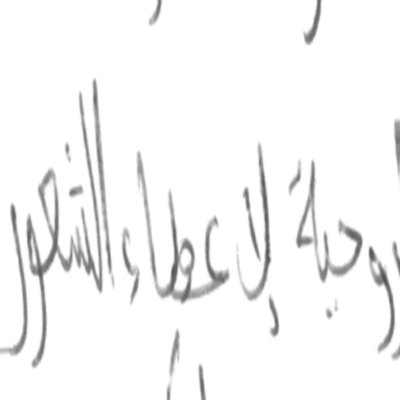 روحية لإعطاء الشعور